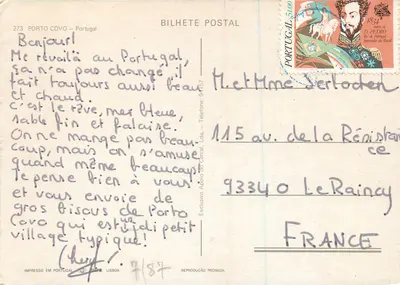 BILHETE POSTAL
273 PORTO COVO - Portugal
Bonjour!
Me revoilà au Portugal,
ça n'a pas changé il
fait toujours aussi beau
et chaud.
C'est le rêve, mer bleue,
sable fin et falaise.
On ne mange pas beau-
coup, mais on s'amuse
quand même beaucoup
Je pense bien à vous
et vous envoie de
gros bisous de Porto
Covo qui est un joli petit
village typique!
7/87
IMPRESSO EM PORTUGAL
LISBOA
REPRODUÇÃO PROIBIDA
PORTUGAL 51$00
1834
D. PEDRO
M. et Mme
115 av. de la Résistan
ce
93340 Le Raincy
FRANCE